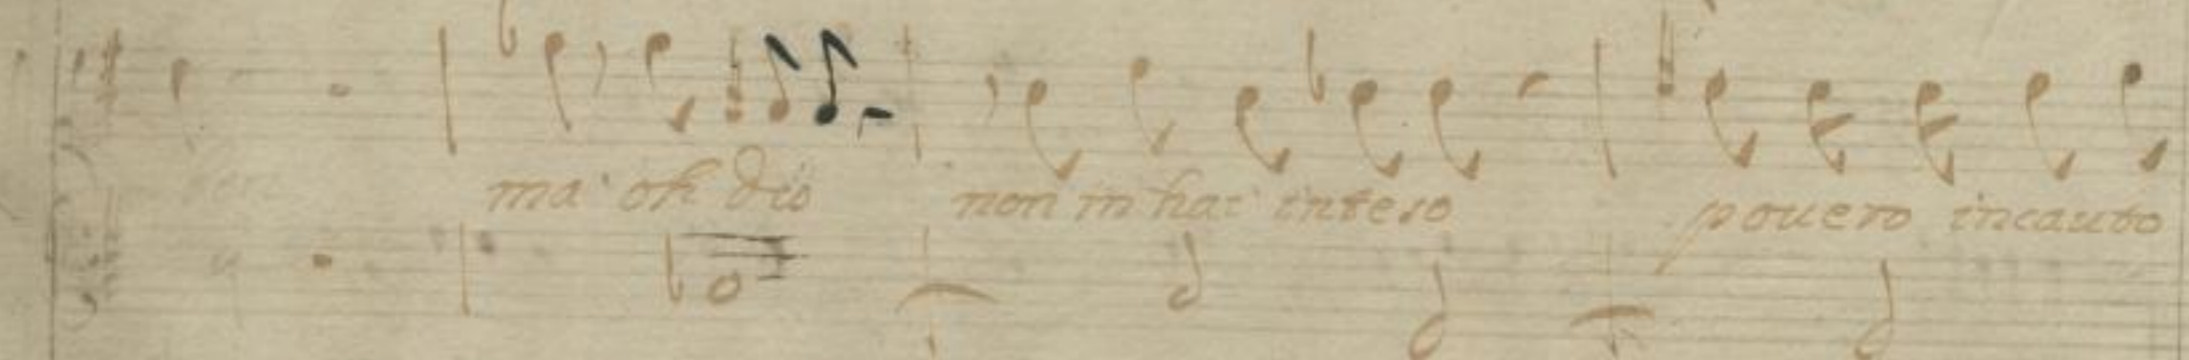 ma' oh dio non m'hai inteso povero incauto